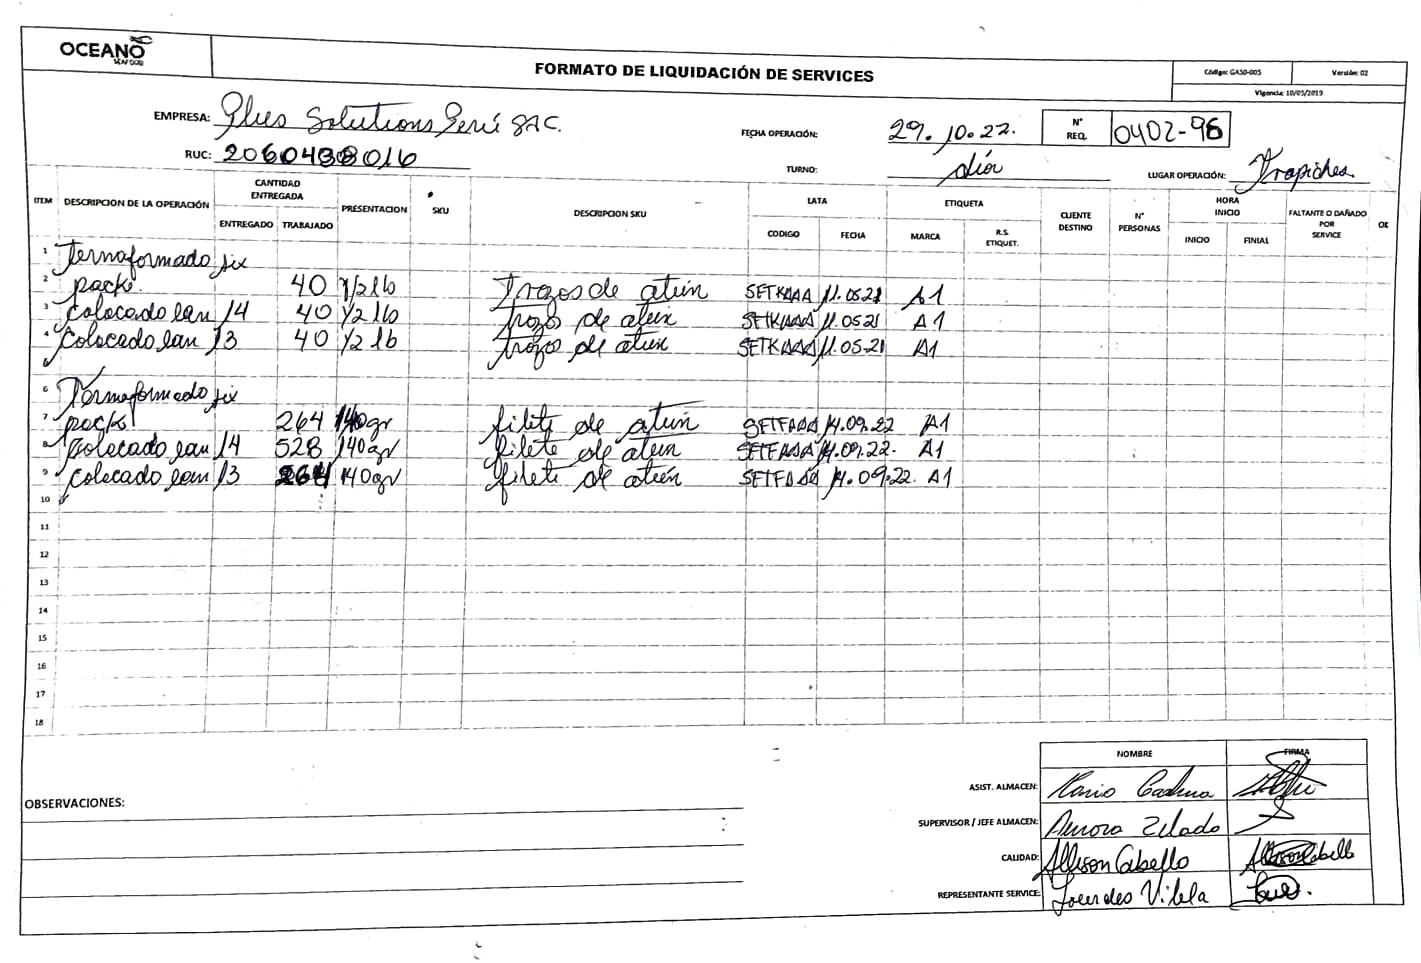 OCEANO
SEAFOOD
FORMATO DE LIQUIDACIÓN DE SERVICES
Código: GASO-005 Versión: 02
Vigencia: 10/05/2019
EMPRESA: Plus Solutions Perú SAC.
FECHA OPERACIÓN: 29.10.22.
N° REQ. 0402-96
RUC:
TURNO: día
LUGAR OPERACIÓN: Trapiches
ITEM DESCRIPCION DE LA OPERACIÓN CANTIDAD ENTREGADA ENTREGADO TRABAJADO PRESENTACION SKU DESCRIPCION SKU LATA CODIGO FECHA ETIQUETA MARCA R.S. ETIQUET. CLIENTE DESTINO N° PERSONAS HORA INICIO INICIO FINIAL FALTANTE O DAÑADO POR SERVICE
1 Termaformado six
2 pack. 40 1/2 lb Trozos de atún 11.05.21 A1
3 Colocado lam 14 40 1/2 lb trozo de atun 11.05.21 A1
4 Colocado lam 13 40 1/2 lb trozo de atun 11.05.21 A1
5
6 Termaformado six
7 pack 264 140gr filete de atun 14.09.22 A1
8 Colocado lam 14 528 140gr filete de atun 14.09.22. A1
9 Colocado lam 13 264 140gr filete de atún 14.09.22. A1
10
11
12
13
14
15
16
17
18
OBSERVACIONES:
NOMBRE FIRMA
ASIST. ALMACEN: Mario
SUPERVISOR / JEFE ALMACEN: Aurora Zelado
CALIDAD: Allison Cabello
REPRESENTANTE SERVICE: Lourdes Vilela